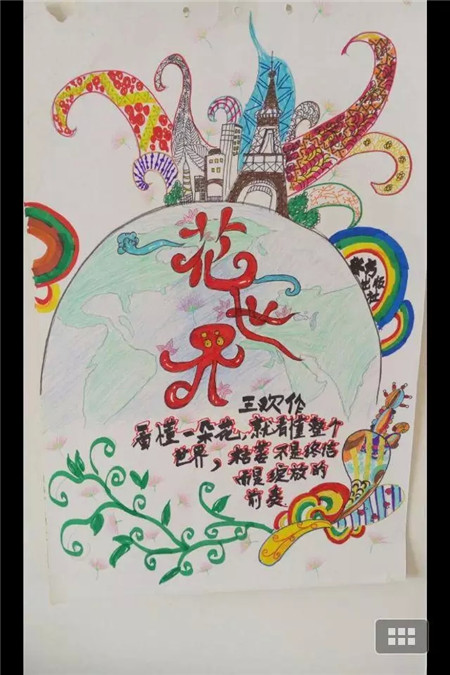 花世界
王欢作
看懂一朵花,就看懂整个
世界,枯萎不是终结
而是绽放的
前奏
东方
出版
社